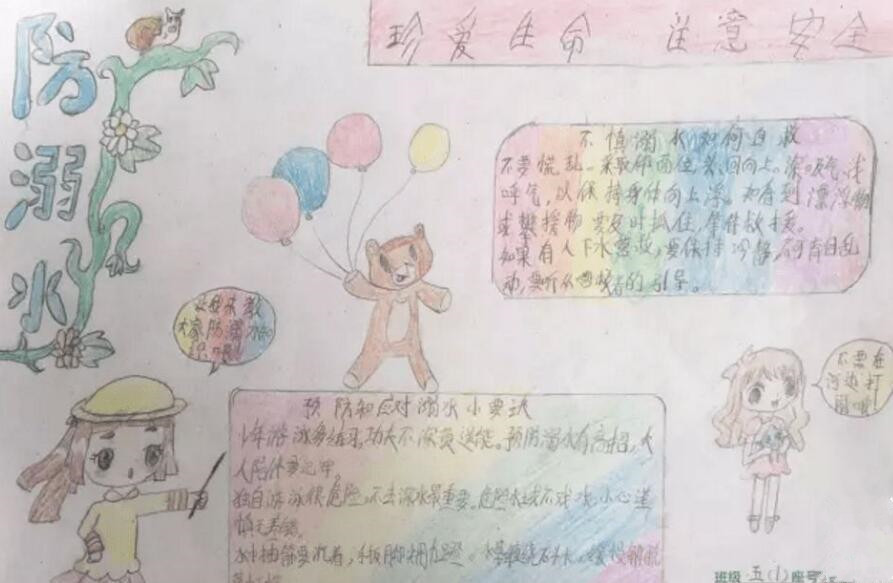 防溺水
珍爱生命 注意安全
不慎溺水如何自救
不要慌乱。采取仰面位,头向上。深吸气,浅
呼气,以保持身体向上浮。如看到漂浮物
或攀援物要及时抓住,等待救援。
如果有人下水营救,要保持冷静,不可盲目乱
动,要听从营救者的引导。
大家防溺水的
不要在
河边打
闹哦!
预防和应对溺水小要诀
少年游泳多练习,功夫不深莫逞能。预防溺水有高招,大
人陪伴要记牢。
独自游泳很危险,不去深水最重要。危险水域不戏水,小心谨
慎无
水中抽筋要沉着,手扳脚拇
班级 五(1) 座号